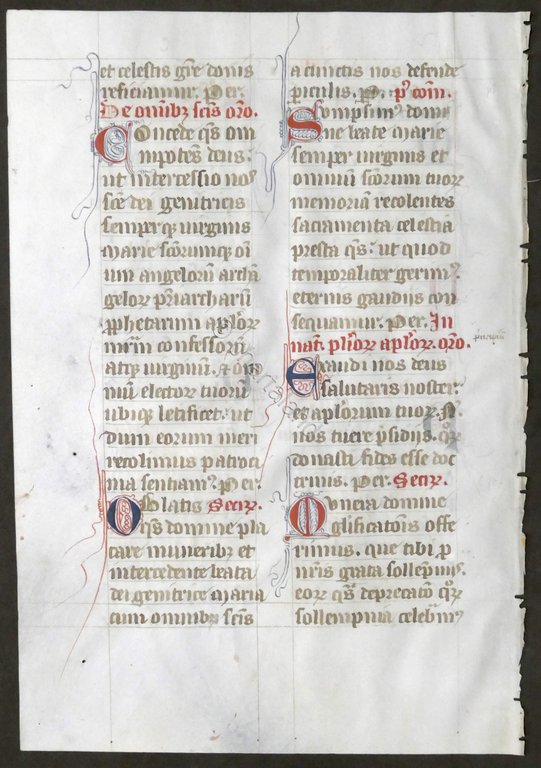 et celestis gr̄e donis
reficiamur. Per.
De om̄ibꝫ scīs oro.
Concede qs̄ om
nipotēs deus.
ut intercessio nos
scē dei genitricis
semperqꝫ uirginis
marie scōrumqꝫ oī
um angelorū archā
gelorꝝ pr̄iarcharū
ꝓphetarum aplōrꝝ
mr̄m confessorū
atqꝫ uirginū. ⁊ om
niū electorꝝ tuorū
ubiqꝫ letificet. ut
dum eorum meri
recolimus patroci
nia sentiamꝰ. Per.
Oblatis Secrꝝ.
qs̄ domine pla
care muneribꝫ et
intercedente beata
dei genitrice maria
cum omnibꝫ scīs
a cunctis nos defende
periculis. P. pꝰ com̄.
Sumpsimꝰ domi
ne beate marie
semper uirginis et
omniū scōrum tuorꝝ
memoriā recolentes
sacramenta celestia
presta qs̄. ut quod
temporaliter gerimꝰ.
eternis gaudijs con
sequamur. Per. In
nat. pl'iorꝝ aplōrꝝ. oro.
Exaudi nos deus
salutaris noster.
et aplōrum tuorꝝ. N.
nos tuere p̄sidijs. qrꝝ
donasti fides esse doc
trinis. Per. Secrꝝ.
Munera domine
glificatōis offe
rimus. que tibi ꝑ
nr̄is grata sollepnijs.
eorꝝ qs̄ deprecatō qrꝝ
sollempnia celebr̄mꝰ